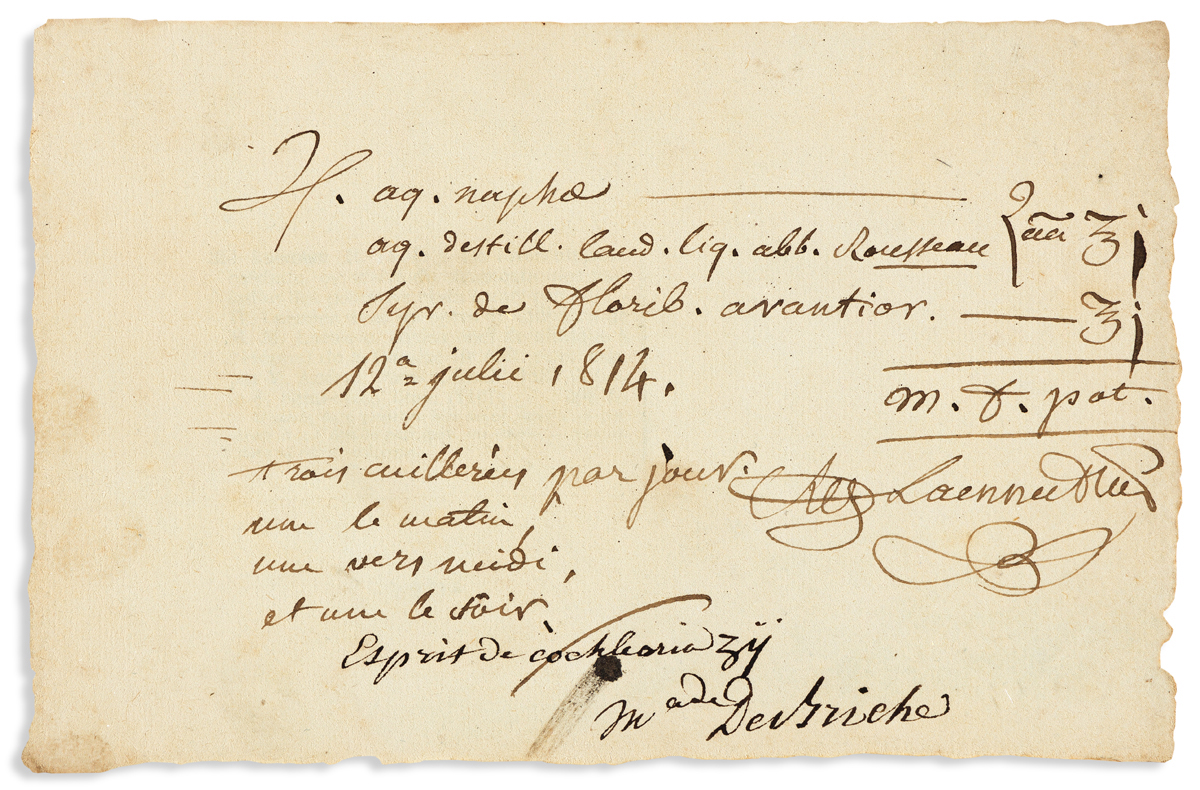 ℞. aq. naphæ
aq. destill. laud. liq. abb. Rousseau } aa ℥j
Syr. de florib. avantior. ℥j
12ª julii 1814.
m. f. pot.
trois cuillerées par jour.
une le matin,
une vers midi,
et une le soir.
Laennec DM
Esprit de cochlearia ʒij
Made Desbriche